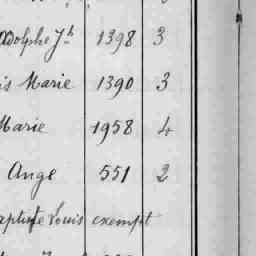 Adolphe Jh 1398 3
is Marie 1390 3
Marie 1958 4
Ange 551 2
aptiste Louis exempt